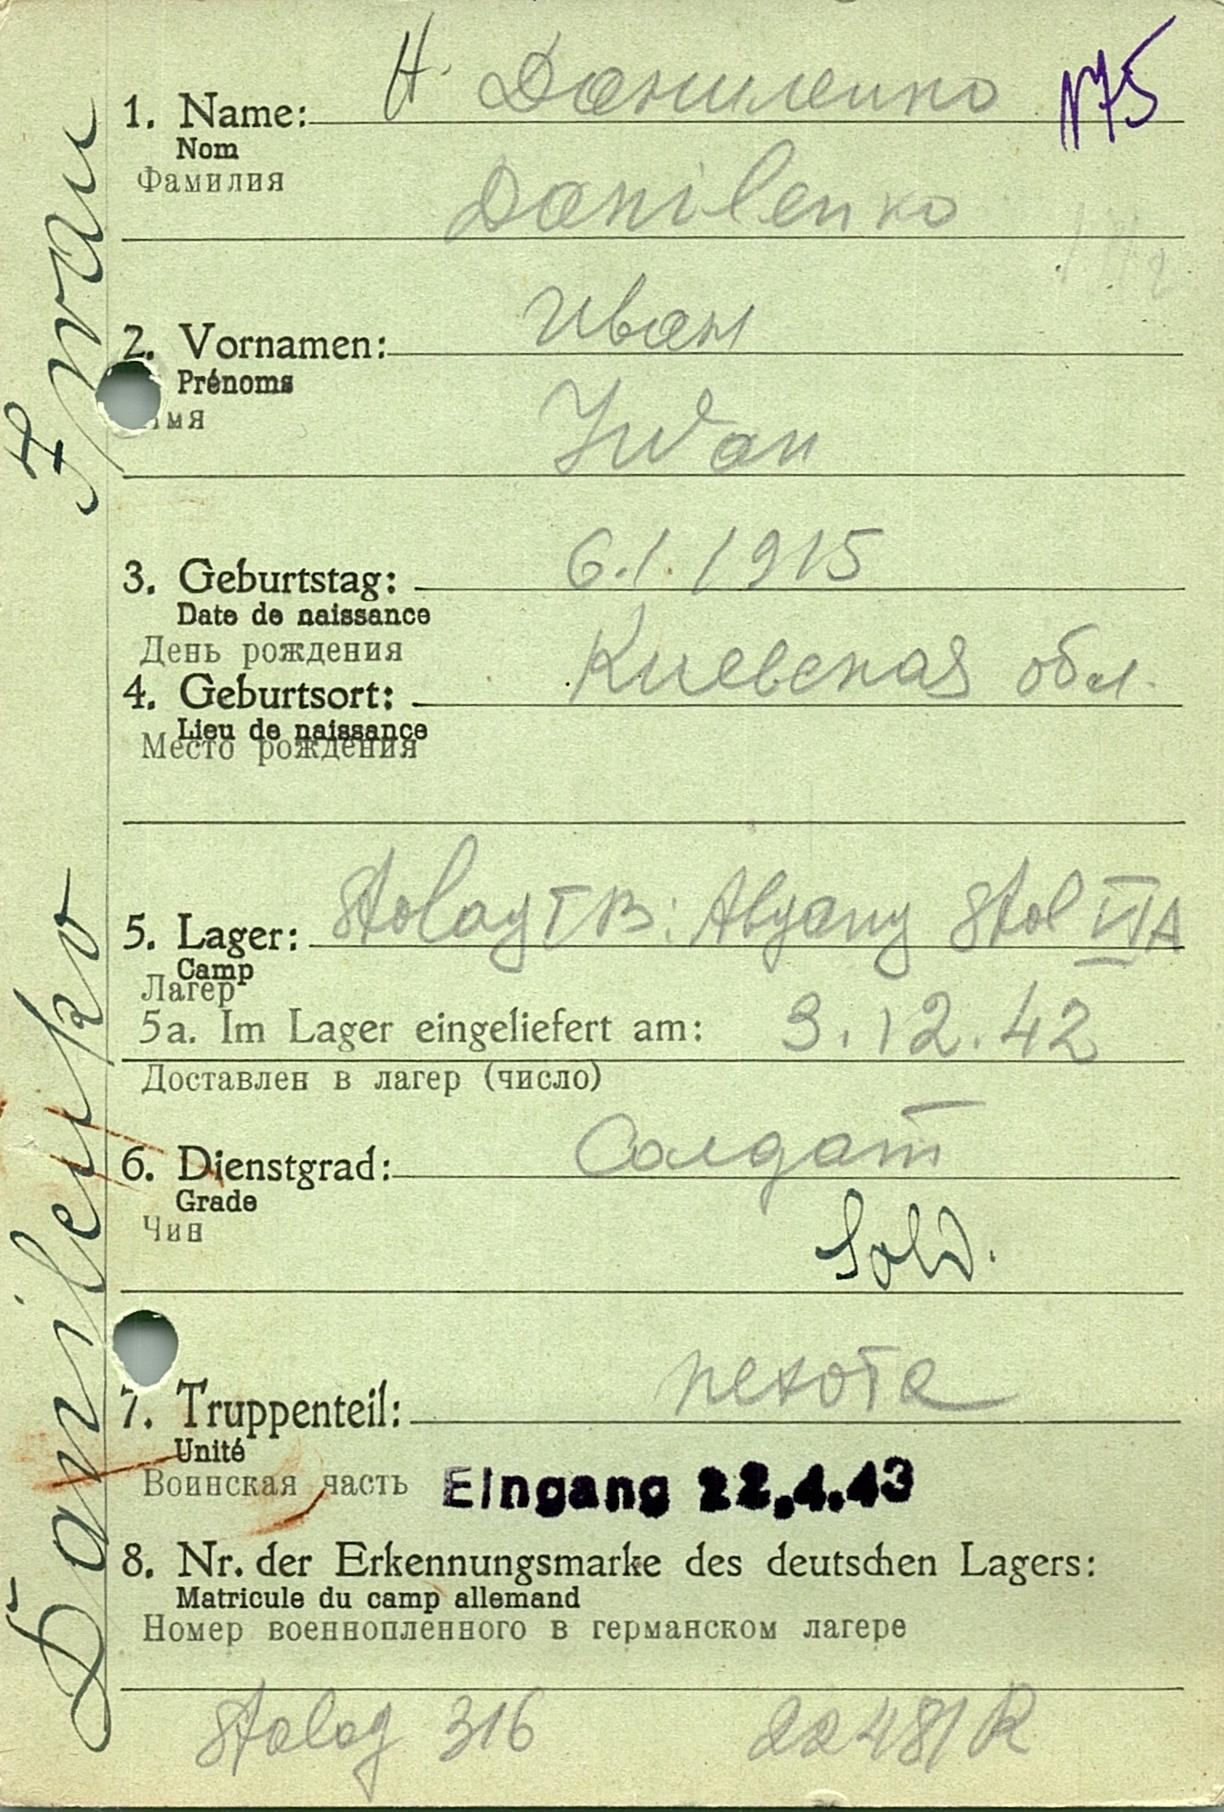 H. Даниленко N75
1. Name:
Nom
Фамилия
Danilenko
2. Vornamen: Иван
Prénoms
Имя
Iwan
3. Geburtstag: 6.1.1915
Date de naissance
День рождения
4. Geburtsort: Киевская обл.
Lieu de naissance
Место рождения
5. Lager: Stalag I B: Abgang Stal VI A
Camp
Лагер
5a. Im Lager eingeliefert am: 3.12.42
Доставлен в лагер (число)
6. Dienstgrad: Солдат
Grade
Чин
Sold.
7. Truppenteil: пехота
Unité
Воинская часть Eingang 22.4.43
8. Nr. der Erkennungsmarke des deutschen Lagers:
Matricule du camp allemand
Номер военнопленного в германском лагере
Stalag 316 22481 R
Danilenko Iwan